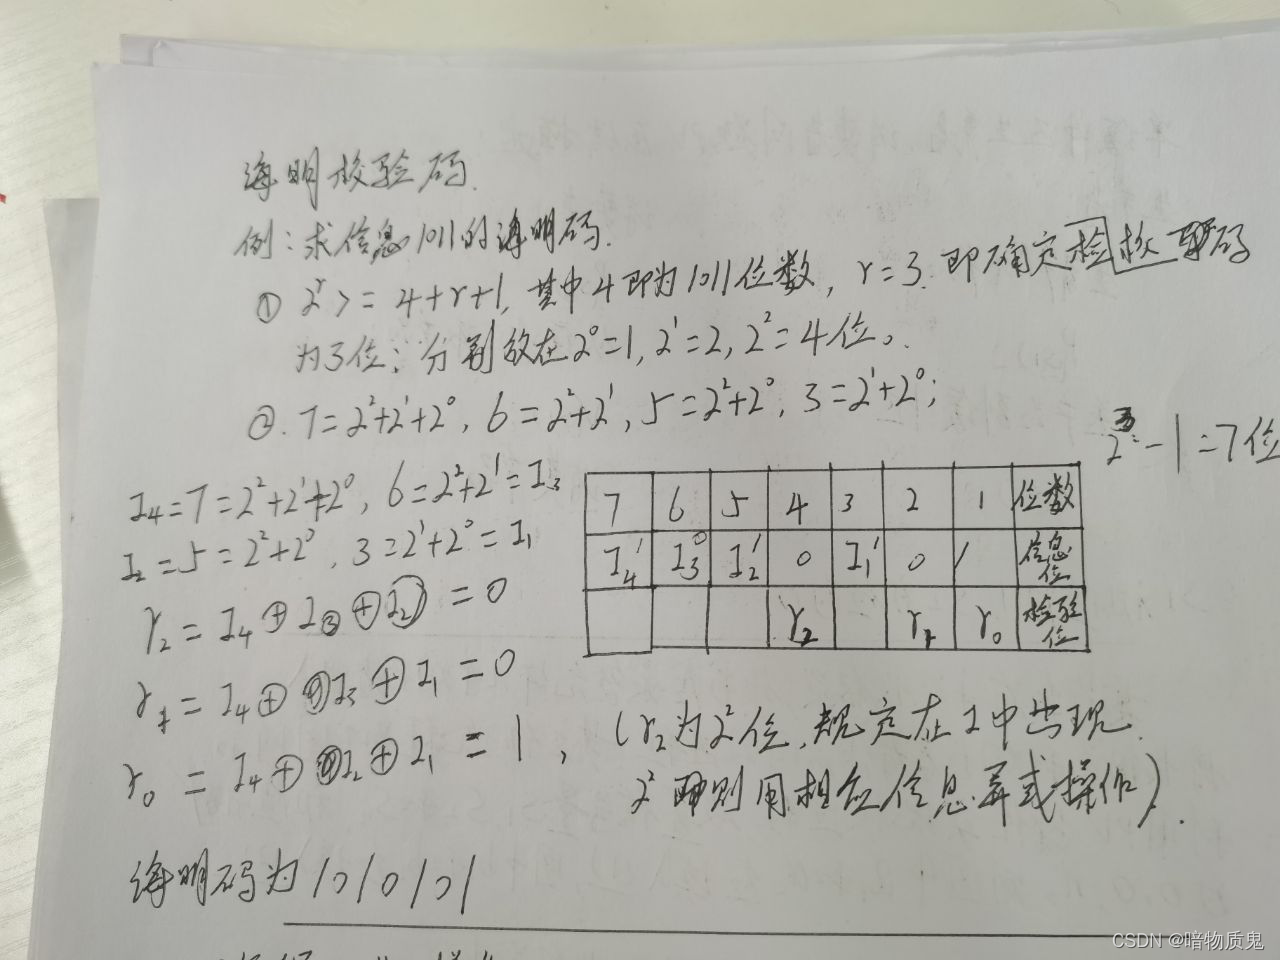 海明校验码.
例:求信息1011的海明码.
① 2^r >= 4+r+1, 其中4即为1011位数, r=3. 即确定检校码
为3位; 分别放在2^0=1, 2^1=2, 2^2=4位。
②. 7=2^2+2^1+2^0, 6=2^2+2^1, 5=2^2+2^0, 3=2^1+2^0;
2^3-1=7位
I4=7=2^2+2^1+2^0, 6=2^2+2^1=I3
I2=5=2^2+2^0, 3=2^1+2^0=I1
r2=I4⊕I3⊕I2=0
r1=I4⊕I3⊕I1=0
r0=I4⊕I2⊕I1=1,
7 6 5 4 3 2 1 位数
I4^1 I3^0 I2^1 0 I1^1 0 1 信息位
r2 r1 r0 检验位
(r2为2^2位,规定在I中出现
2^2 则用相应信息异或操作).
海明码为1010101
CSDN @暗物质鬼